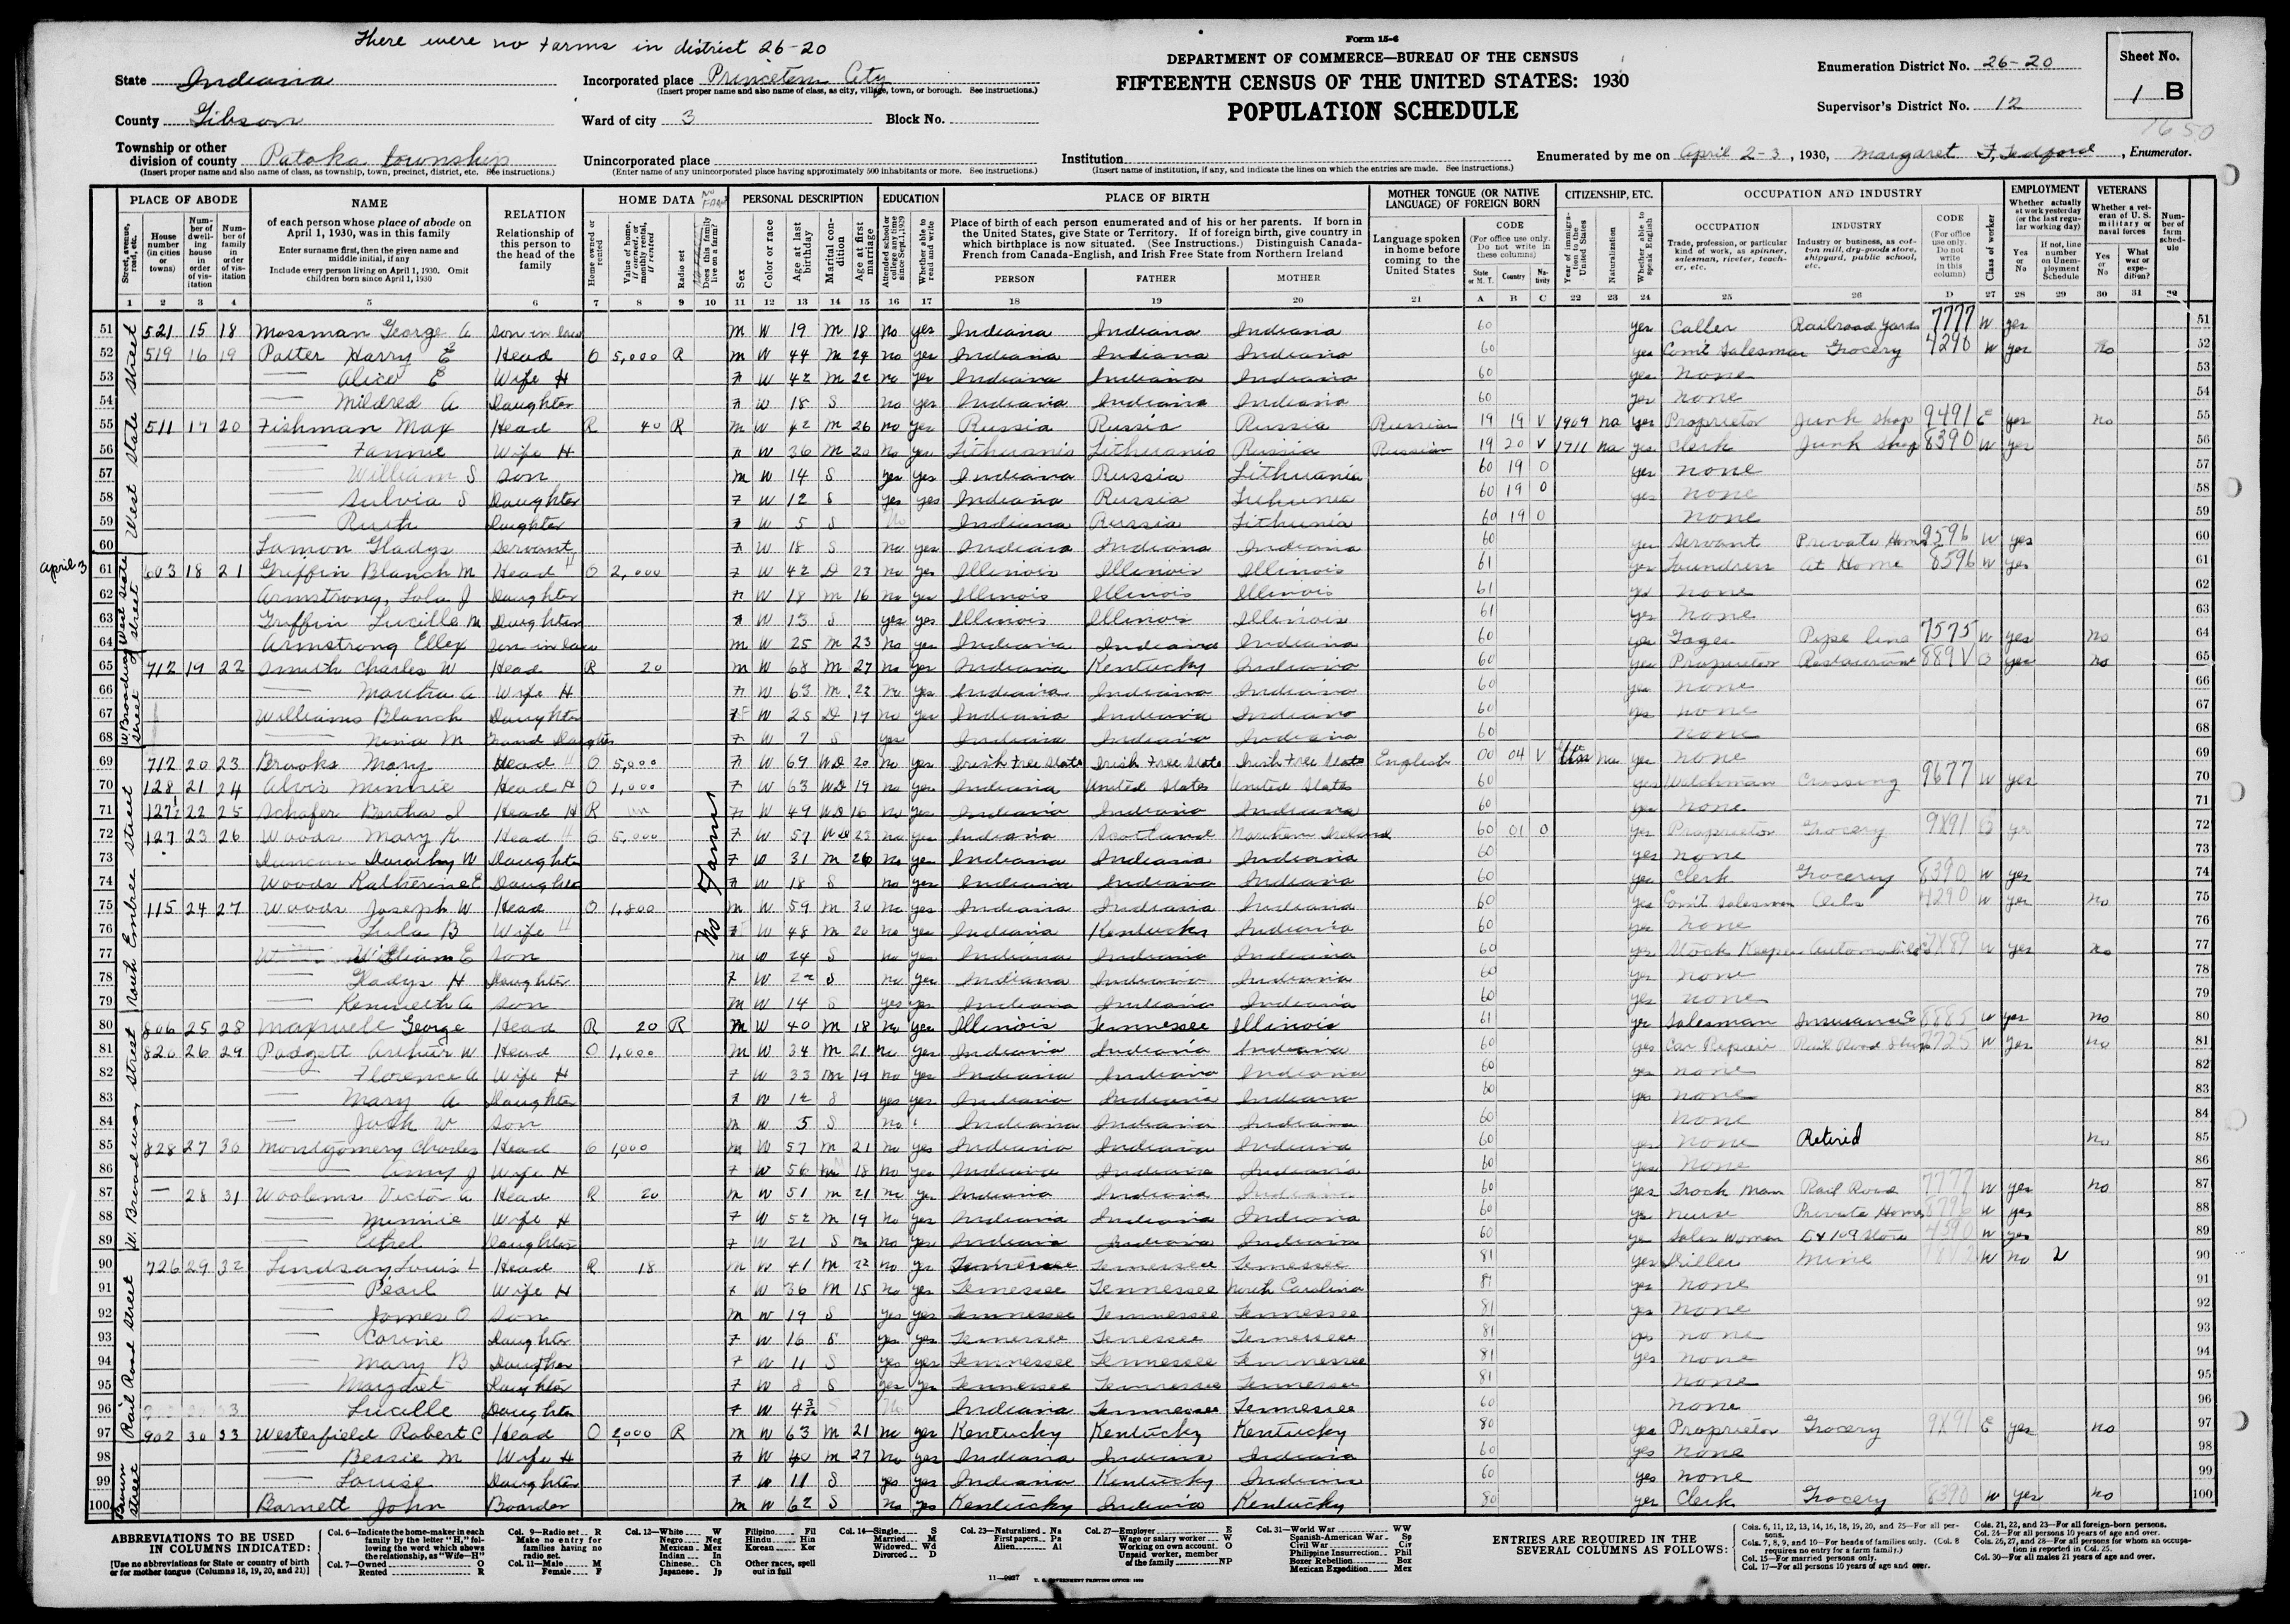 There were no farms in district 26-20
Form 15-6
DEPARTMENT OF COMMERCE—BUREAU OF THE CENSUS
FIFTEENTH CENSUS OF THE UNITED STATES: 1930
POPULATION SCHEDULE
State Indiana
County Gibson
Township or other division of county Patoka township
(Insert proper name and also name of class, as township, town, precinct, district, etc. See instructions.)
Incorporated place Princeton City
(Insert proper name and also name of class, as city, village, town, or borough. See instructions.)
Ward of city 3 Block No.
Unincorporated place
(Enter name of any unincorporated place having approximately 500 inhabitants or more. See instructions.)
Institution
(Insert name of institution, if any, and indicate the lines on which the entries are made. See instructions.)
Enumeration District No. 26-20
Supervisor's District No. 12
Sheet No. 1 B
Enumerated by me on April 2-3, 1930, Margaret F. Tedford, Enumerator.
PLACE OF ABODE NAME RELATION HOME DATA PERSONAL DESCRIPTION EDUCATION PLACE OF BIRTH MOTHER TONGUE (OR NATIVE LANGUAGE) OF FOREIGN BORN CITIZENSHIP, ETC. OCCUPATION AND INDUSTRY EMPLOYMENT VETERANS
51 521 15 18 Mossman George A Son in law M W 19 M 18 No yes Indiana Indiana Indiana 60 yes Caller Railroad Yards 7777 W yes 51
52 519 16 19 Harry E Head O 5,000 R M W 44 M 24 no yes Indiana Indiana Indiana 60 yes Com'l Salesman Grocery 4290 W yes No 52
53 Alice E Wife H F W 42 M 22 no yes Indiana Indiana Indiana 60 yes none 53
54 Mildred A Daughter F W 18 S No yes Indiana Indiana Indiana 60 yes none 54
55 511 17 20 Fishman Max Head R 40 R M W 42 M 26 no yes Russia Russia Russia Russian 19 19 V 1909 na yes Proprietor Junk shop 9491 E yes no 55
56 Fannie Wife H F W 36 M 20 No yes Lithuania Lithuania Russia Russian 19 20 V 1911 na yes Clerk Junk Shop 8390 W yes 56
57 William S Son M W 14 S yes yes Indiana Russia Lithuania 60 19 O yes none 57
58 Sulvia S Daughter F W 12 S yes yes Indiana Russia 60 19 O yes none 58
59 Ruth Daughter F W 5 S No Indiana Russia Lithunia 60 19 O none 59
60 Lamon Gladys Servant F W 18 S no yes Indiana Indiana Indiana 60 yes Servant Private Home 9596 W yes 60
April 3
61 603 18 21 Griffin Blanch M Head H O 2,000 F W 42 D 23 no yes Illinois Illinois Illinois 61 yes Laundress At Home 8596 W yes 61
62 Armstrong, Lola J Daughter F W 18 M 16 no yes Illinois Illinois Illinois 61 yes none 62
63 Griffin Lucille M Daughter F W 13 S yes yes Illinois Illinois Illinois 61 yes none 63
64 Armstrong Son in law M W 25 M 23 no yes Indiana Indiana Indiana 60 yes Pipe line 7575 W yes No 64
65 712 19 22 Smith Charles W Head R 20 M W 68 M 27 no yes Indiana Kentucky Indiana 60 yes Proprietor Restaurant 889V O yes no 65
66 Martha A Wife H F W 63 M 22 no yes Indiana Indiana Indiana 60 yes none 66
67 Williams Blanch Daughter F W 25 D 17 no yes Indiana Indiana Indiana 60 yes none 67
68 M Grand Daughter F W 7 S yes Indiana Indiana Indiana 60 none 68
69 712 20 23 Brooks Mary Head H O 5,000 F W 69 WD 20 no yes Irish Free State Irish Free State Irish Free State English 00 04 V Na yes none 69
70 128 21 24 Alvis Minnie Head H O 1,000 F W 63 WD 19 no yes Indiana United States United States 60 yes Watchman Crossing 9677 W yes 70
71 127½ 22 25 Schafer Bertha I Head H R F W 49 WD 16 no yes Indiana Indiana Indiana 60 yes none 71
72 127 23 26 Woods Mary K Head H O 5,000 F W 57 WD 23 no yes Indiana Scotland Northern Ireland 60 01 O yes Proprietor Grocery 9X91 O yes 72
73 Duncan Dorothy W Daughter F W 31 M 26 no yes Indiana Indiana Indiana 60 yes none 73
74 Woods Katherine E Daughter F W 18 S no yes Indiana Indiana Indiana 60 yes Clerk Grocery 8390 W yes 74
75 115 24 27 Woods Joseph W Head O 1,800 M W 59 M 30 no yes Indiana Indiana Indiana 60 yes Com'l Salesman Oils 4290 W yes No 75
76 Lula B Wife H F W 48 M 20 no yes Indiana Kentucky Indiana 60 yes none 76
77 William E Son M W 24 S no yes Indiana Indiana Indiana 60 yes Stock Keeper Automobiles W yes no 77
78 Gladys H Daughter F W 22 S no yes Indiana Indiana Indiana 60 yes none 78
79 Kenneth A Son M W 14 S yes yes Indiana Indiana Indiana 60 yes none 79
80 806 25 28 Maxwell George Head R 20 R M W 40 M 18 no yes Illinois Tennessee Illinois 61 yes Salesman Insurance Co 8885 W yes no 80
81 820 26 29 Padgett Arthur W Head O 1,000 M W 34 M 21 no yes Indiana Indiana Indiana 60 yes Car Repair Rail Road Shop W yes no 81
82 Florence A Wife H F W 33 M 19 no yes Indiana Indiana Indiana 60 yes none 82
83 Mary A Daughter F W 12 S yes yes Indiana Indiana Indiana 60 yes none 83
84 Jack W Son M W 5 S no Indiana Indiana Indiana 60 none 84
85 828 27 30 Montgomery Charles Head O 1,000 M W 57 M 21 no yes Indiana Indiana Indiana 60 yes none Retired no 85
86 Amy J Wife H F W 56 M 18 no yes Indiana Indiana Indiana 60 yes none 86
87 — 28 31 Woolems Victor A Head R 20 M W 51 M 21 no yes Indiana Indiana Indiana 60 yes Track Man Rail Road 7777 W yes no 87
88 Minnie Wife H F W 52 M 19 no yes Indiana Indiana Indiana 60 yes Nurse Private Home W yes 88
89 Ethel Daughter F W 21 S no yes Indiana Indiana Indiana 60 yes Sales Woman 5 & 10¢ Store 4590 W yes 89
90 726 29 32 Lindsay Louis L Head R 18 M W 41 M 22 no yes Tennessee Tennessee Tennessee 81 yes Driller Mine W no 2 90
91 Pearl Wife H F W 36 M 15 no yes Tennessee Tennessee North Carolina 81 yes none 91
92 James O Son M W 19 S yes yes Tennessee Tennessee Tennessee 81 yes none 92
93 Corine Daughter F W 16 S yes yes Tennessee Tennessee Tennessee 81 yes none 93
94 Mary B Daughter F W 11 S yes yes Tennessee Tennessee Tennessee 81 yes none 94
95 Margaret Daughter F W 8 S yes yes Tennessee Tennessee Tennessee 81 none 95
96 Lucille Daughter F W S No Indiana Tennessee Tennessee 60 none 96
97 902 30 33 Westerfield Robert C Head O 2,000 R M W 63 M 21 no yes Kentucky Kentucky Kentucky 80 yes Proprietor Grocery 9X91 E yes no 97
98 Bessie M Wife H F W 40 M 27 no yes Indiana Indiana Indiana 60 yes none 98
99 Louise Daughter F W 11 S yes yes Indiana Kentucky Indiana 60 yes none 99
100 Barnett John Boarder M W 62 S no yes Kentucky Indiana Kentucky 80 yes Clerk Grocery 8390 W yes no 100
West State street
West State street
W. Broadway street
North Embree street
W. Broadway street
Rail Road street
street
No Farms
ABBREVIATIONS TO BE USED IN COLUMNS INDICATED:
[Use no abbreviations for State or country of birth or for mother tongue (Columns 18, 19, 20, and 21)]
Col. 6—Indicate the home-maker in each family by the letter "H," following the word which shows the relationship, as "Wife—H"
Col. 7—Owned O Rented R
Col. 9—Radio set R Make no entry for families having no radio set.
Col. 11—Male M Female F
Col. 12—White W Negro Neg Mexican Mex Indian In Chinese Ch Japanese Jp Filipino Fil Hindu Hin Korean Kor Other races, spell out in full
Col. 14—Single S Married M Widowed Wd Divorced D
Col. 23—Naturalized Na First papers Pa Alien Al
Col. 27—Employer E Wage or salary worker W Working on own account O Unpaid worker, member of the family NP
Col. 31—World War WW Spanish-American War Sp Civil War Civ Philippine Insurrection Phil Boxer Rebellion Box Mexican Expedition Mex
ENTRIES ARE REQUIRED IN THE SEVERAL COLUMNS AS FOLLOWS:
Cols. 6, 11, 12, 13, 14, 16, 18, 19, 20, and 25—For all persons.
Cols. 7, 8, 9, and 10—For heads of families only. (Col. 8 requires no entry for a farm family.)
Col. 15—For married persons only.
Col. 17—For all persons 10 years of age and over.
Cols. 21, 22, and 23—For all foreign-born persons.
Col. 24—For all persons 10 years of age and over.
Cols. 26, 27, and 28—For all persons for whom an occupation is reported in Col. 25.
Col. 30—For all males 21 years of age and over.
U. S. GOVERNMENT PRINTING OFFICE